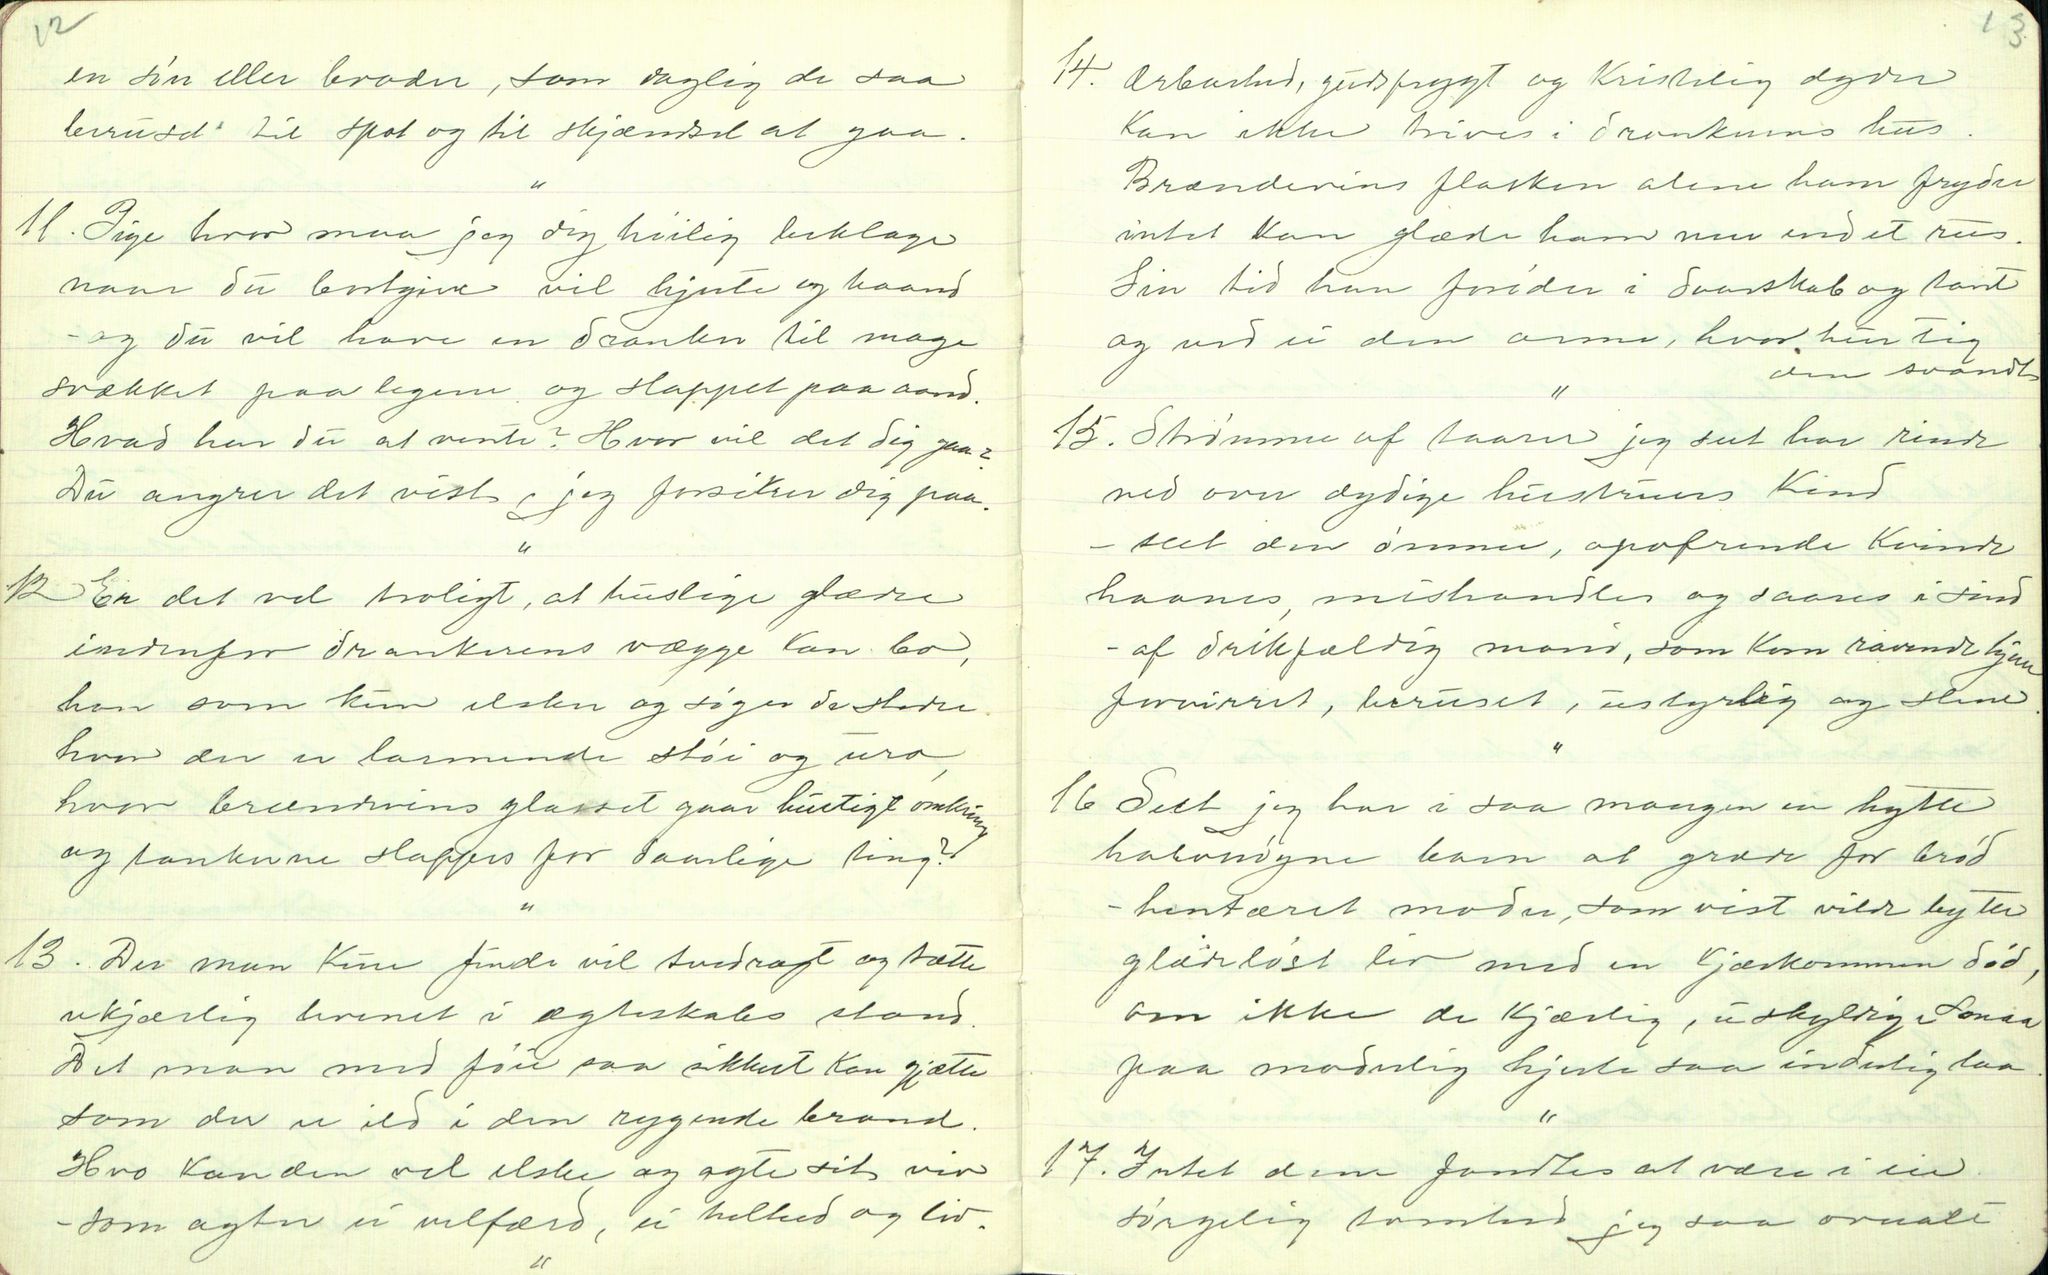 12
en sön eller broder, som daglig de saa
beruset til spot og til skjændsel at gaa.
"
11. Pige hvor maa jeg dig höilig beklage
naar du bortgive vil hjerte og haand
- og du vil have en dranker til mage
svækket paa legeme og slappet paa aand.
Hvad har du at vente? Hvor vil det dig gaa?
Du angrer det vist, jeg forsikrer dig paa.
"
12 Er det vel troligt, at huslige glæder
indenfor drankerens vægge kan bo,
han som kun elsker og söger de steder
hvor der er larmende stöi og uro,
hvor brændevins glasset gaar hurtigt omkring
og tankerne slappes for daarlige ting?
"
13. Der man kun finde vil tvedragt og trætte
ukjærlig levenet i ægteskabs stand.
Det man med föie saa sikkert kan gjætte
som der er ild i den rygende brand.
Hvo kan den vel elske og agte sit viv
- som agter ei velfærd, ei helbred og liv.
"
13
14. Ærbarhed, gudsfrygt og Kristelig dyder
kan ikke trives i drankerens hus.
Brændevins flasken alene ham fryder
intet kan glæde ham mer end et rus.
Sin tid han foröder i daarskab og tant
og ved ei den arme, hvor hurtig
den svandt
"
15. Strömme af taarer jeg seet har rinde
ned over dydige hustruers kind
- seet den ömme, opofrende kvinde
haanes, mishandles og saares i sind
- af drikfældig mand, som kom ravende hjem
forvirret, beruset, ustyrlig og slem.
"
16 Seet jeg har i saa mangen en hytte
halvnögne barn at græde for bröd
- hentæret moder, som vist vilde bytte
glædelöst liv med en kjærkommen död,
om ikke de kjærlig, uskyldige smaa
paa moderlig hjerte saa inderlig laa.
"
17. Intet dem fandtes at være i eie
sörgelig tomhed jeg saa overalt